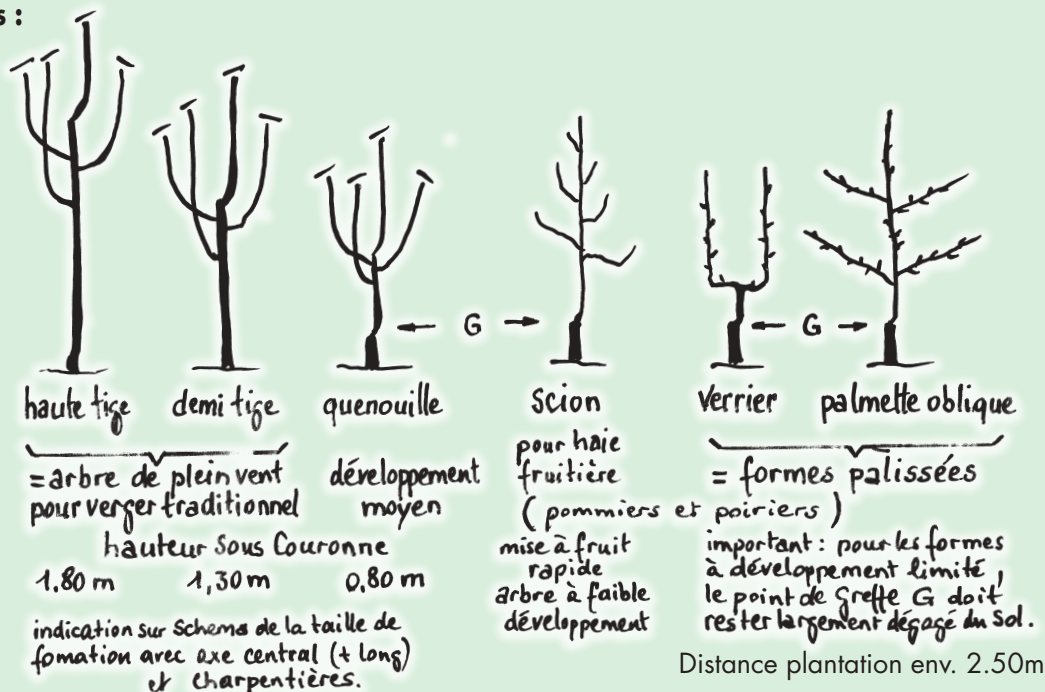 s :
G
G
haute tige
demi tige
quenouille
scion
verrier
palmette oblique
= arbre de plein vent
pour verger traditionnel
développement
moyen
pour haie
fruitière
= formes palissées
( pommiers et poiriers )
hauteur sous couronne
1.80 m
1,30 m
0,80 m
mise à fruit
rapide
arbre à faible
développement
important : pour les formes
à développement limité,
le point de greffe G doit
rester largement dégagé du sol.
indication sur schema de la taille de
fomation avec axe central (+ long)
et charpentières.
Distance plantation env. 2.50m